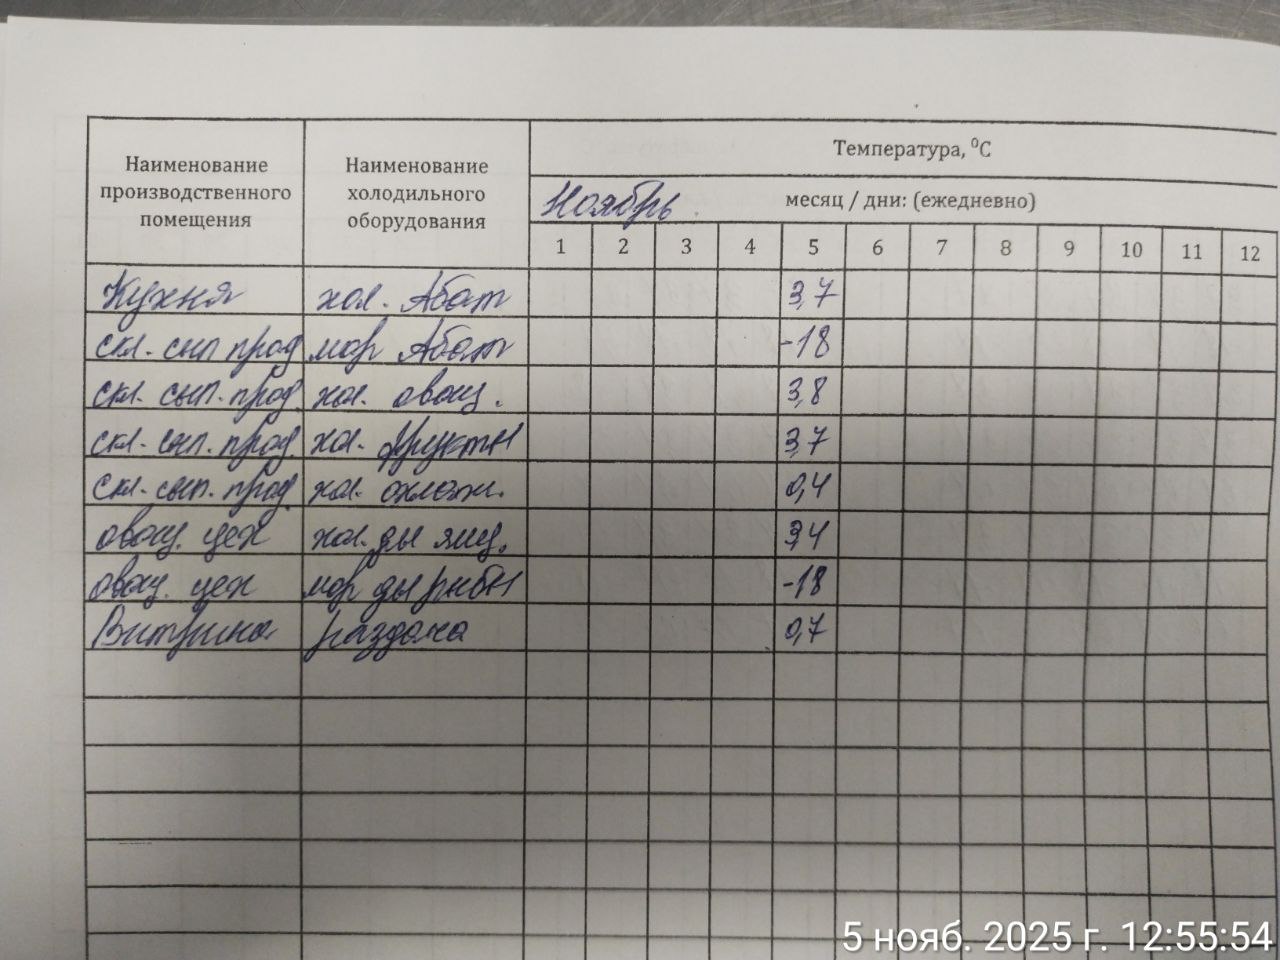 Наименование производственного помещения
Наименование холодильного оборудования
Температура, ⁰С
Ноябрь месяц / дни: (ежедневно)
1 2 3 4 5 6 7 8 9 10 11 12
Кухня хол. Абат 3,7
скл. сып прод мор Абат -18
скл. сып. прод. хол. овощ. 3,8
скл. сып. прод. хол. фрукты 3,7
скл. сып. прод. хол. охлажд. 0,4
овощ. цех хол. дл яиц. 3,4
овощ. цех мор дл рыбы -18
Витрина раздача 0,7
5 нояб. 2025 г. 12:55:54